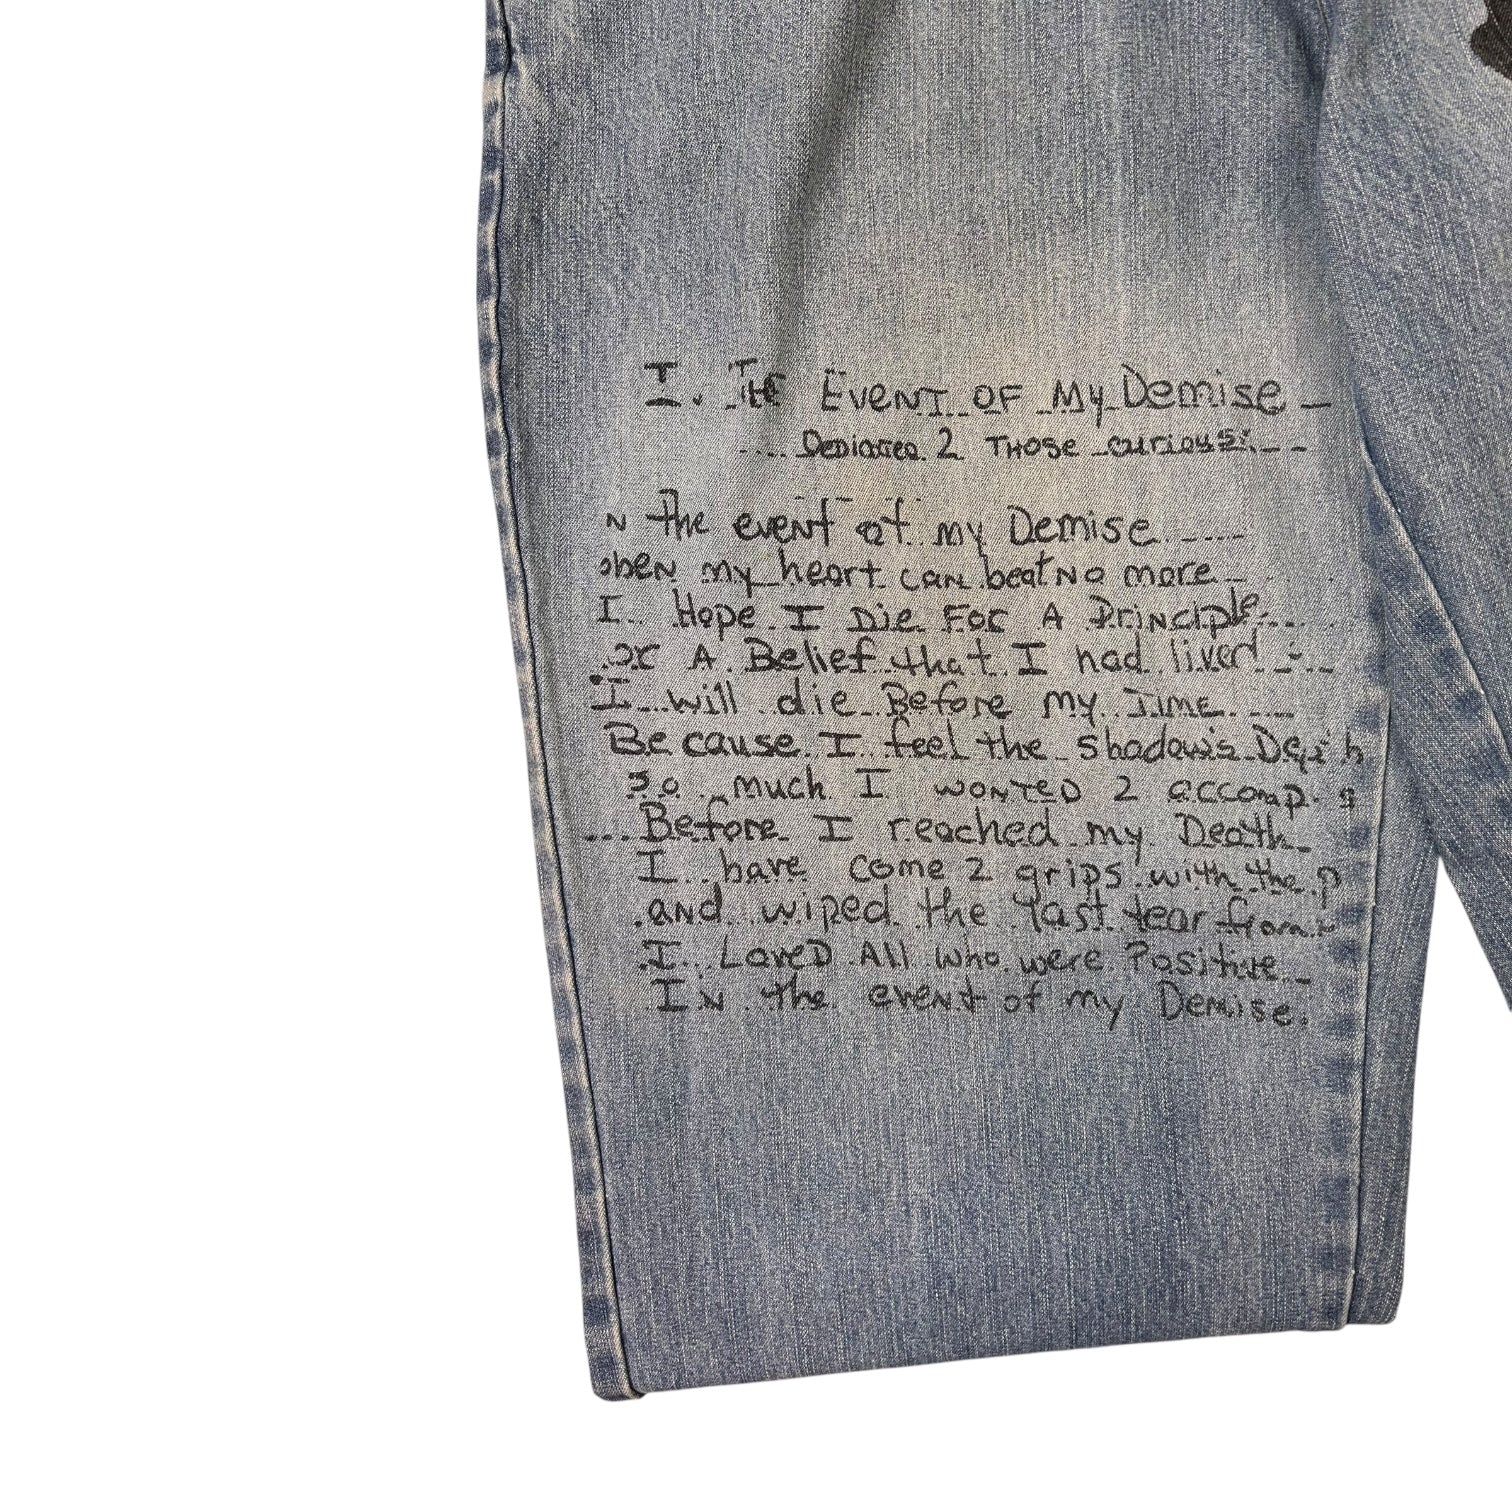 I. THE EVENT OF My Demise
Dedicated 2 THOSE curious
N the event of my Demise
when my heart can beat No more
I Hope I Die FOR A Principle
or A Belief that I had lived
I will die Before my TIME
Because I feel the shadow's Depth
so much I wanted 2 accomp s
Before I reached my Death
I have come 2 grips with the p
and wiped the last tear from
I LoveD All who were Positive
IN the event of my Demise.